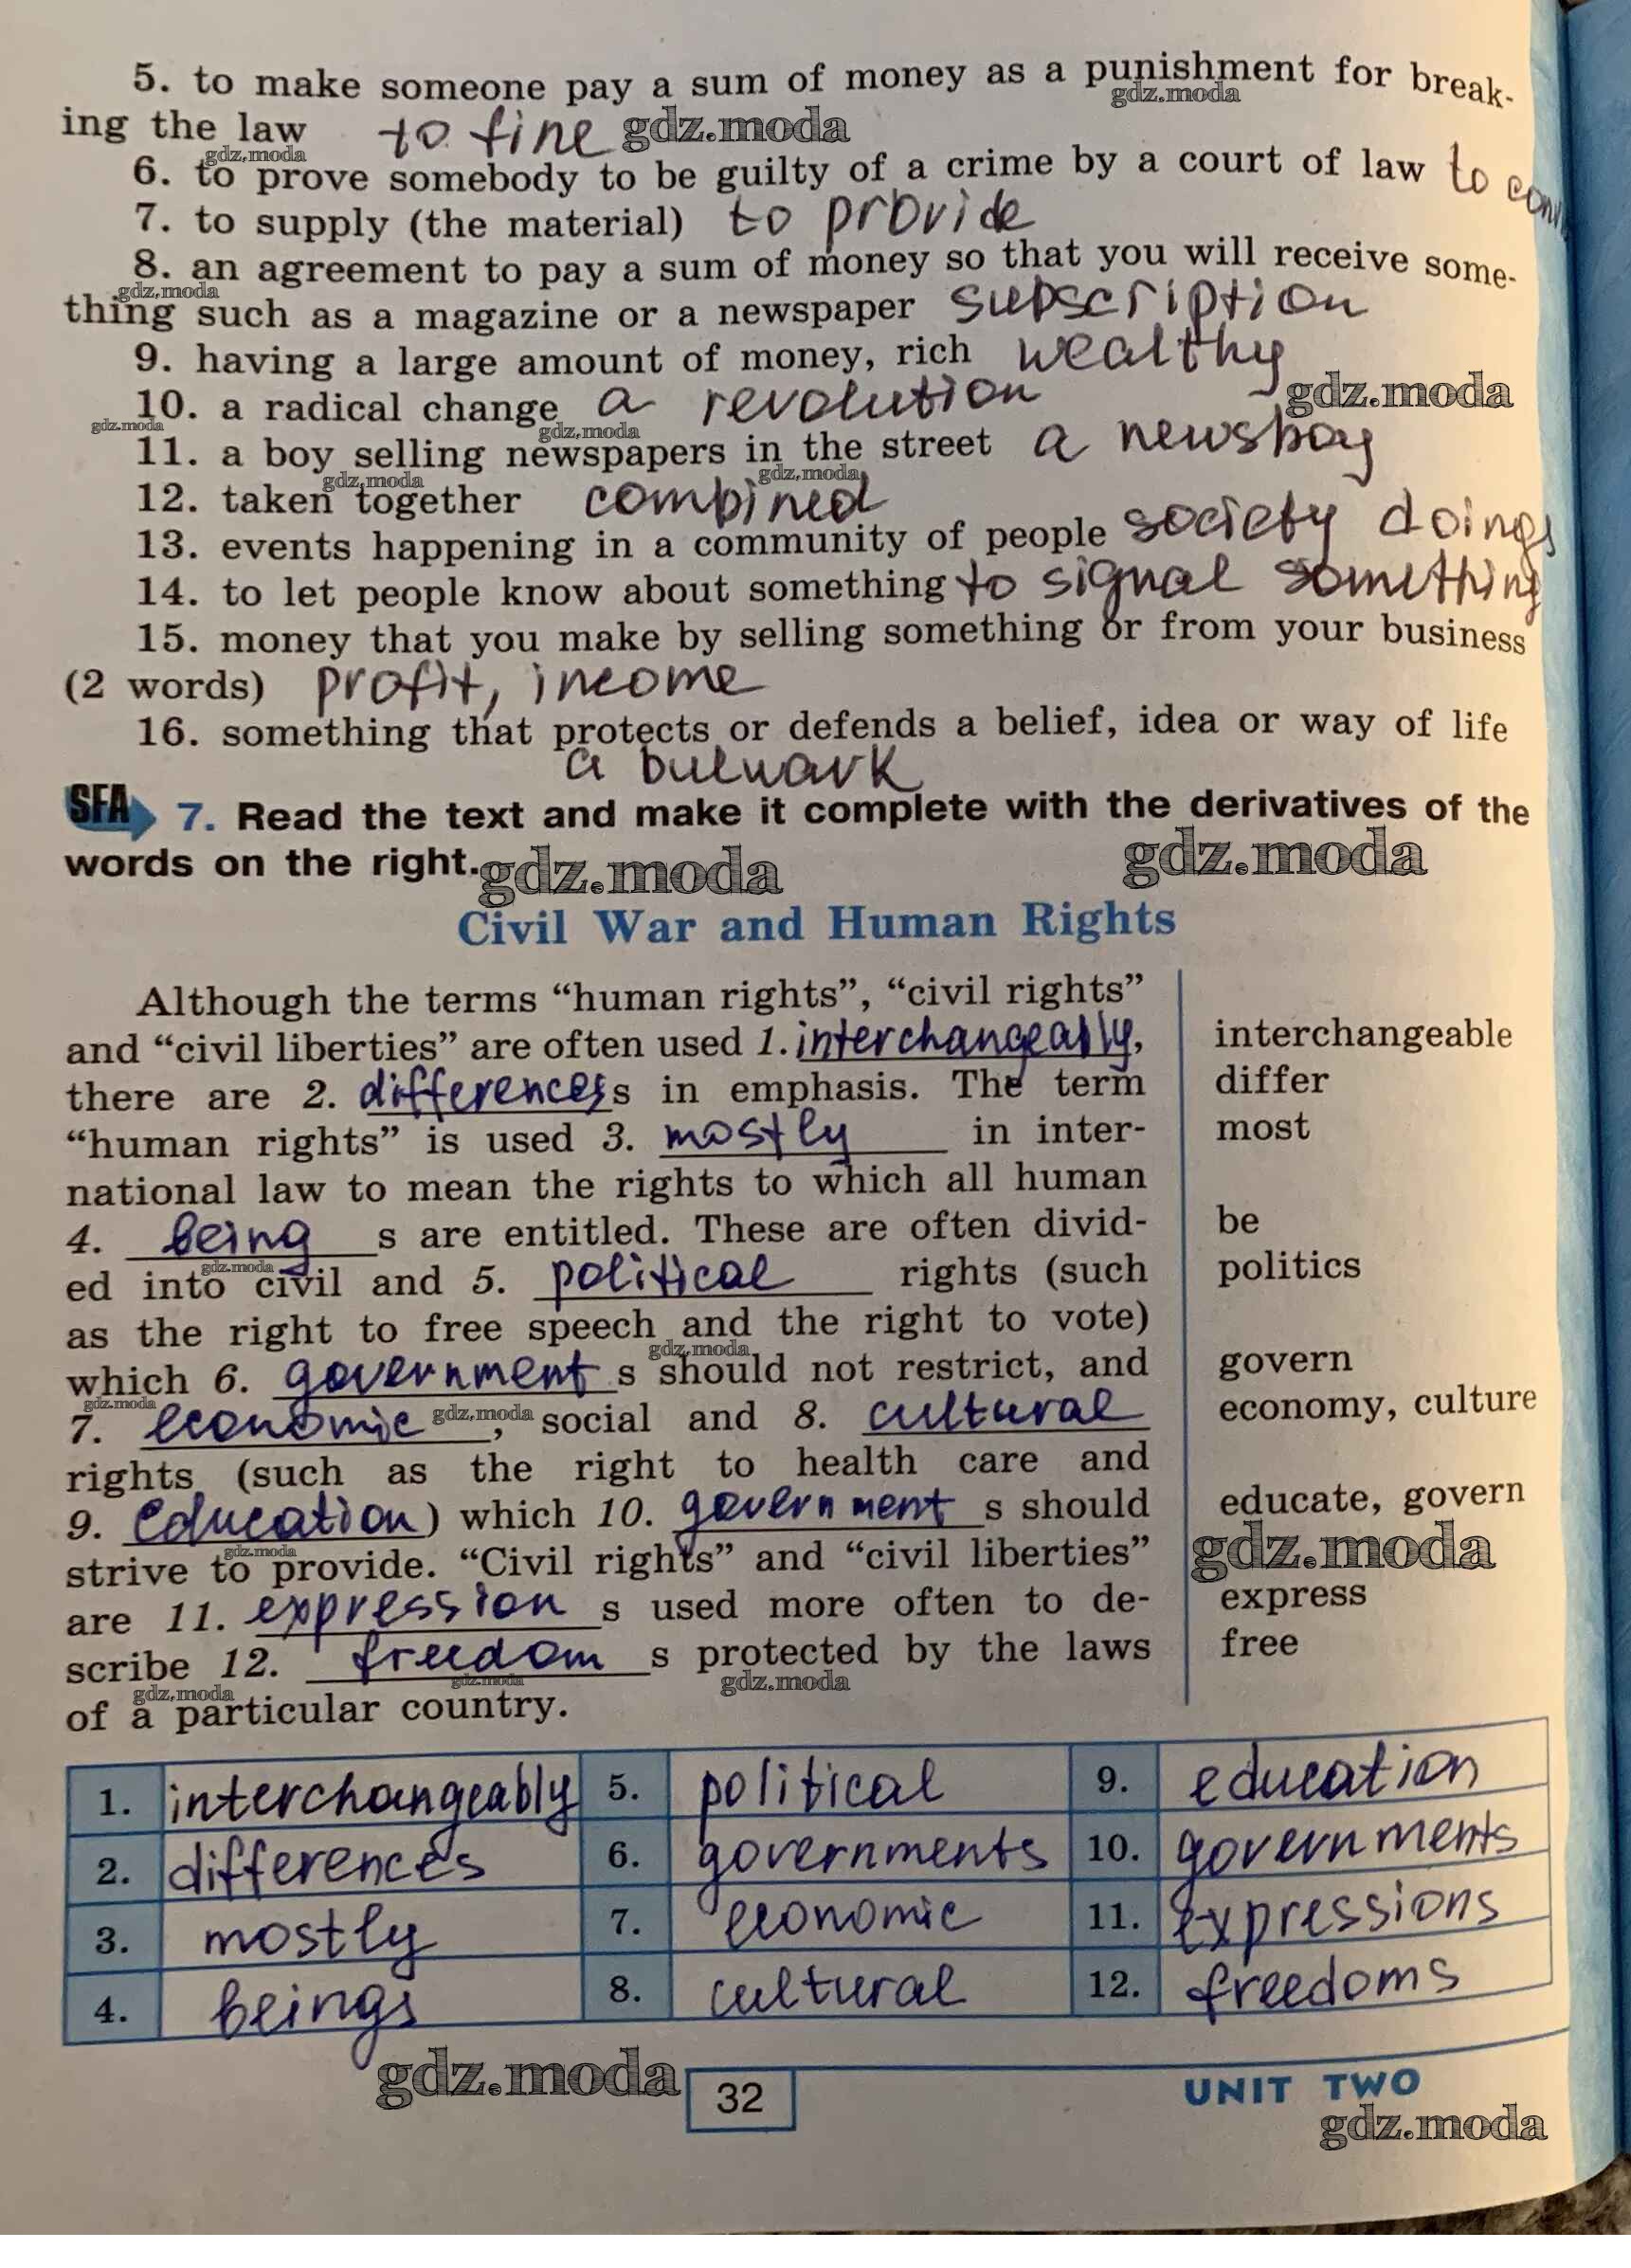 5. to make someone pay a sum of money as a punishment for break-
gdz.moda
ing the law to fine gdz.moda
gdz.moda
6. to prove somebody to be guilty of a crime by a court of law to
7. to supply (the material) to provide
8. an agreement to pay a sum of money so that you will receive some-
gdz.moda
thing such as a magazine or a newspaper subscription
9. having a large amount of money, rich wealthy
gdz.moda
10. a radical change a revolution
gdz.moda gdz.moda
11. a boy selling newspapers in the street a newsboy
gdz.moda gdz.moda
12. taken together combined
13. events happening in a community of people society doings
14. to let people know about something to signal something
15. money that you make by selling something or from your business
(2 words) profit, income
16. something that protects or defends a belief, idea or way of life
a bulwark
SFA 7. Read the text and make it complete with the derivatives of the
words on the right. gdz.moda gdz.moda
Civil War and Human Rights
Although the terms “human rights”, “civil rights”
and “civil liberties” are often used 1. interchangeably, interchangeable
there are 2. differences s in emphasis. The term differ
“human rights” is used 3. mostly in inter- most
national law to mean the rights to which all human
4. being s are entitled. These are often divid- be
gdz.moda
ed into civil and 5. political rights (such politics
as the right to free speech and the right to vote)
gdz.moda
which 6. government s should not restrict, and govern
gdz.moda
7. economic gdz.moda, social and 8. cultural economy, culture
rights (such as the right to health care and
9. education) which 10. government s should educate, govern
gdz.moda gdz.moda
strive to provide. “Civil rights” and “civil liberties”
are 11. expression s used more often to de- express
scribe 12. freedom s protected by the laws free
gdz.moda gdz.moda gdz.moda
of a particular country.
1. interchangeably 5. political 9. education
2. differences 6. governments 10. governments
3. mostly 7. economic 11. expressions
4. beings 8. cultural 12. freedoms
gdz.moda 32 UNIT TWO
gdz.moda